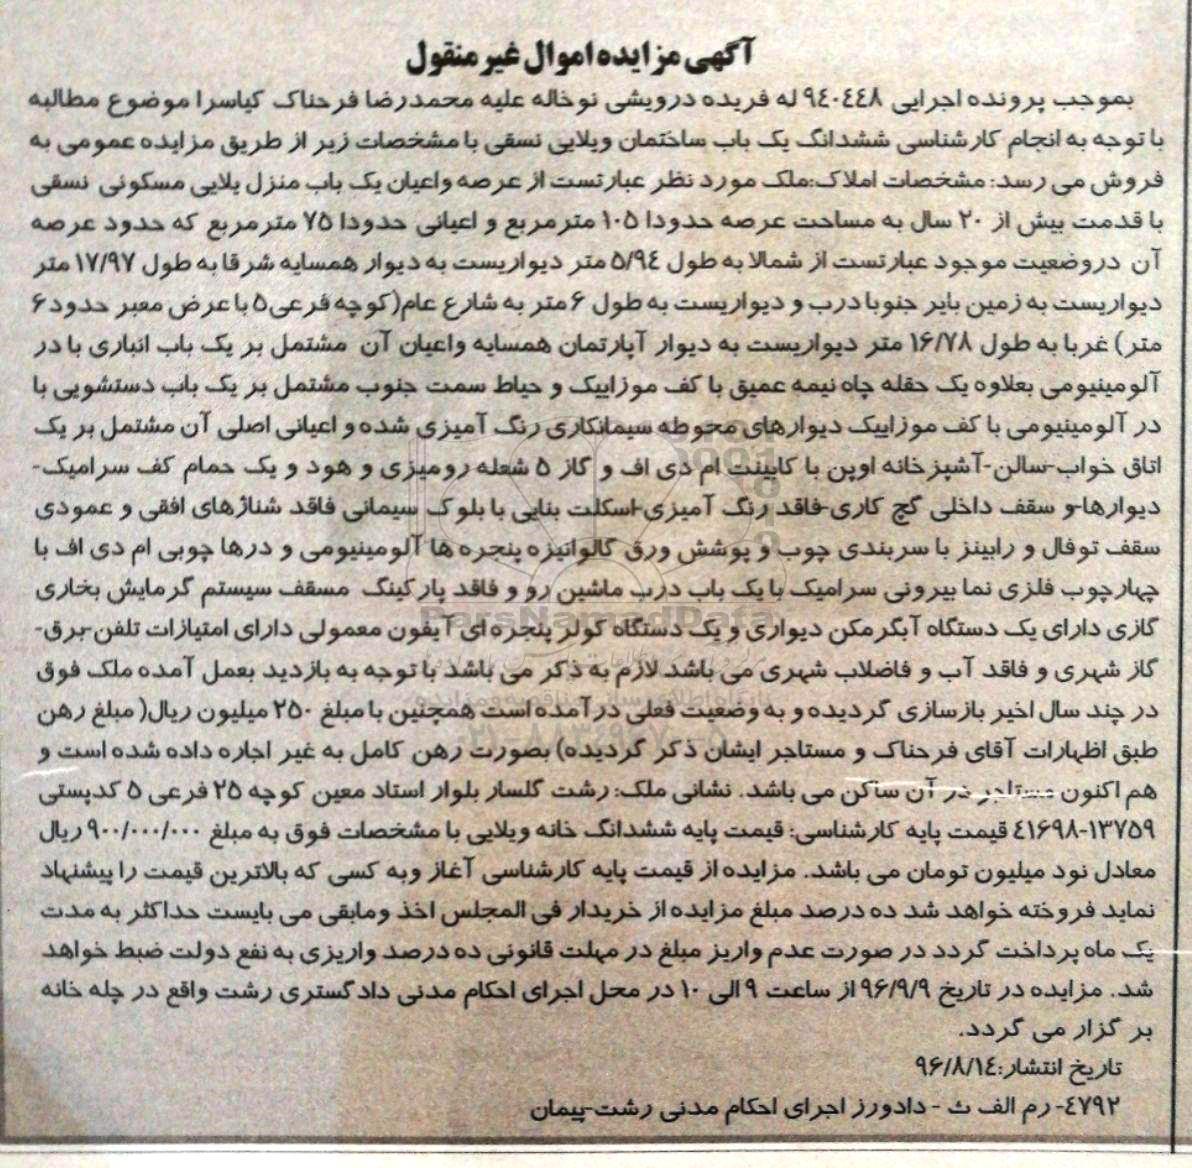 آگهی مزایده اموال غیر منقول
بموجب پرونده اجرایی ۹۴۰۴۴۸ له فریده درویشی نوخاله علیه محمدرضا فرحناک کیاسرا موضوع مطالبه
با توجه به انجام کارشناسی ششدانگ یک باب ساختمان ویلایی نسقی با مشخصات زیر از طریق مزایده عمومی به
فروش می رسد: مشخصات املاک:ملک مورد نظر عبارتست از عرصه واعیان یک باب منزل یلایی مسکونی نسقی
با قدمت بیش از ۲۰ سال به مساحت عرصه حدودا ۱۰۵ مترمربع و اعیانی حدودا ۷۵ مترمربع که حدود عرصه
آن دروضعیت موجود عبارتست از شمالا به طول ۵/۹۴ متر دیواریست به دیوار همسایه شرقا به طول ۱۷/۹۷ متر
دیواریست به زمین بایر جنوبا درب و دیواریست به طول ۶ متر به شارع عام(کوچه فرعی۵ با عرض معبر حدود ۶
متر) غربا به طول ۱۶/۷۸ متر دیواریست به دیوار آپارتمان همسایه واعیان آن مشتمل بر یک باب انباری با در
آلومینیومی بعلاوه یک حقله چاه نیمه عمیق با کف موزاییک و حیاط سمت جنوب مشتمل بر یک باب دستشویی با
در آلومینیومی با کف موزاییک دیوارهای محوطه سیمانکاری رنگ آمیزی شده و اعیانی اصلی آن مشتمل بر یک
اتاق خواب-سالن-آشپزخانه اوپن با کابینت ام دی اف و گاز ۵ شعله رومیزی و هود و یک حمام کف سرامیک-
دیوارها-و سقف داخلی گچ کاری-فاقد رنگ آمیزی-اسکلت بنایی با بلوک سیمانی فاقد شناژهای افقی و عمودی
سقف توفال و رابینز با سربندی چوب و پوشش ورق گالوانیزه پنجره ها آلومینیومی و درها چوبی ام دی اف با
چهارچوب فلزی نما بیرونی سرامیک با یک باب درب ماشین رو و فاقد پارکینگ مسقف سیستم گرمایش بخاری
گازی دارای یک دستگاه آبگرمکن دیواری و یک دستگاه کولر پنجره ای آیفون معمولی دارای امتیازات تلفن-برق-
گاز شهری و فاقد آب و فاضلاب شهری می باشد.لازم به ذکر می باشد با توجه به بازدید بعمل آمده ملک فوق
در چند سال اخیر بازسازی گردیده و به وضعیت فعلی درآمده است همچنین با مبلغ ۲۵۰ میلیون ریال( مبلغ رهن
طبق اظهارات آقای فرحناک و مستاجر ایشان ذکر گردیده) بصورت رهن کامل به غیر اجاره داده شده است و
هم اکنون مستاجر در آن ساکن می باشد. نشانی ملک: رشت گلسار بلوار استاد معین کوچه ۲۵ فرعی ۵ کدپستی
۴۱۶۹۸-۱۳۷۵۹ قیمت پایه کارشناسی: قیمت پایه ششدانگ خانه ویلایی با مشخصات فوق به مبلغ ۹۰۰/۰۰۰/۰۰۰ ریال
معادل نود میلیون تومان می باشد. مزایده از قیمت پایه کارشناسی آغاز وبه کسی که بالاترین قیمت را پیشنهاد
نماید فروخته خواهد شد ده درصد مبلغ مزایده از خریدار فی المجلس اخذ ومابقی می بایست حداکثر به مدت
یک ماه پرداخت گردد در صورت عدم واریز مبلغ در مهلت قانونی ده درصد واریزی به نفع دولت ضبط خواهد
شد. مزایده در تاریخ ۹۶/۹/۹ از ساعت ۹ الی ۱۰ در محل اجرای احکام مدنی دادگستری رشت واقع در چله خانه
بر گزار می گردد.
تاریخ انتشار:۹۶/۸/۱۴
۴۷۹۲- رم الف ث - دادورز اجرای احکام مدنی رشت-پیمان
ParsNamadData